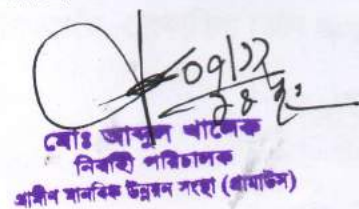 ০৭/১২
২৪ ইং
মোঃ আব্দুল খালেক
নির্বাহী পরিচালক
গ্রামীণ মানবিক উন্নয়ন সংস্থা (গ্রামাউস)